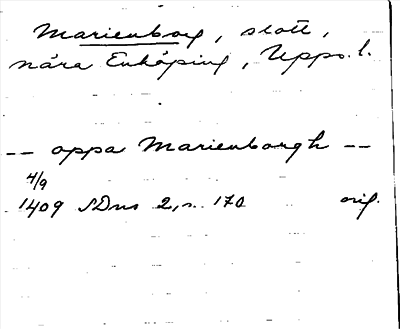 Marienborg, slott,
nära Enköping, Upps. l.
-- oppa Marienborgh --
4/9
1409 SDns 2, s. 170 orig.